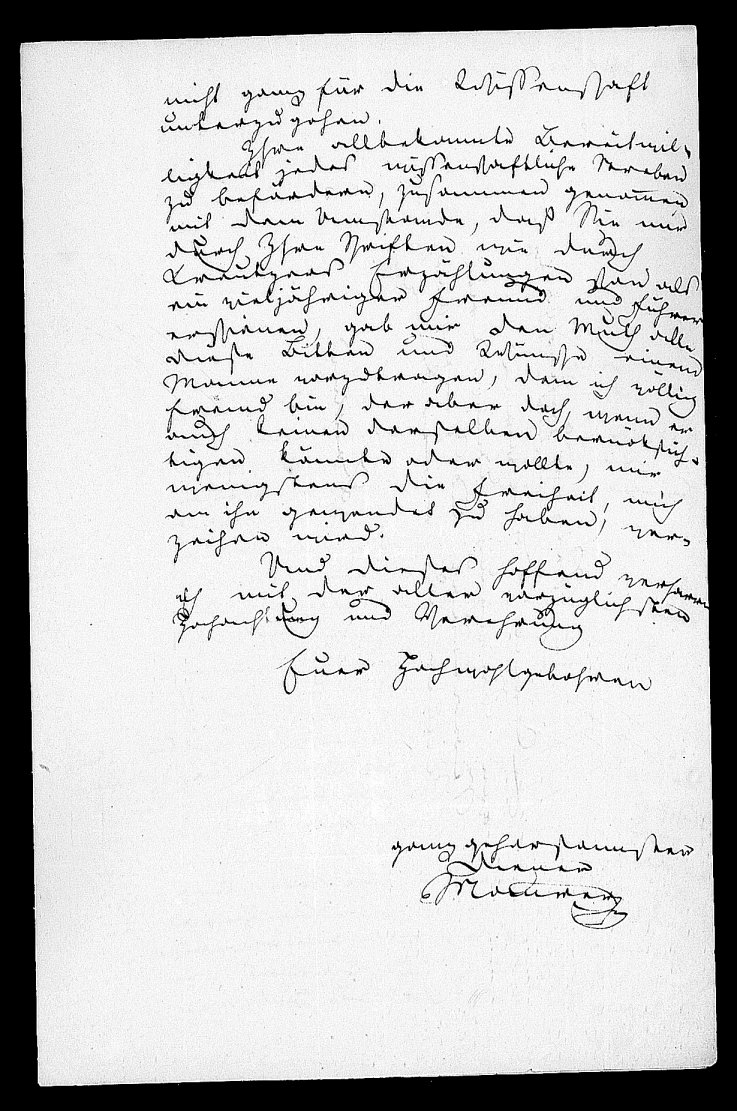 nicht ganz für die Wissenschaft
unterzugehen.
Ihre allbekannte Bereitwil-
ligkeit jedes wissenschaftliche Streben
zu befördern, zusammen genommen
mit dem Umstande, daß Sie mir
durch Ihre Schriften wie durch
Kreutzers Erzählungen schon als
ein vieljähriger Freund und Führer
erschienen, gab mir den Muth alle
diese Bitten und Wünsche einem
Manne vorzutragen, dem ich völlig
fremd bin, der aber doch, wenn er
auch keinen derselben berücksich-
tigen könnte oder wollte, mir
wenigstens die Freiheit, mich
an ihn gewendet zu haben, ver-
zeihen wird.
Und dieses hoffend verharre
ich mit der aller vorzüglichsten
Hochachtung und Verehrung
Euer Hochwohlgebohren
ganz gehorsamster
Diener